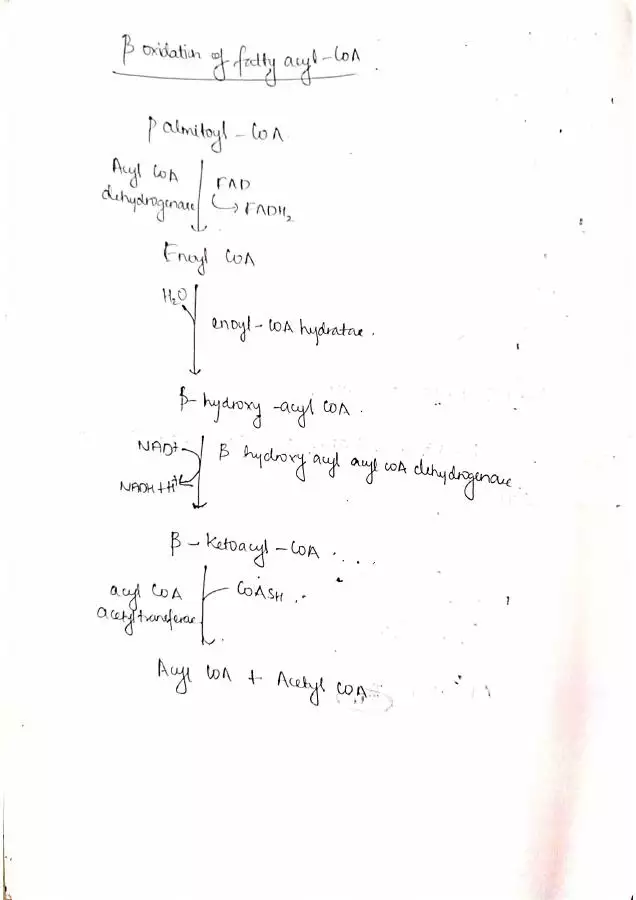 β oxidation of fatty acyl-CoA
Palmitoyl-CoA
Acyl CoA
dehydrogenase
FAD
FADH₂
Enoyl CoA
H₂O
enoyl-CoA hydratase.
β-hydroxy-acyl CoA.
NAD+
β hydroxy acyl acyl CoA dehydrogenase
NADH+H+
β-Ketoacyl-CoA
acyl CoA
acetyltransferase
CoASH
Acyl CoA + Acetyl CoA